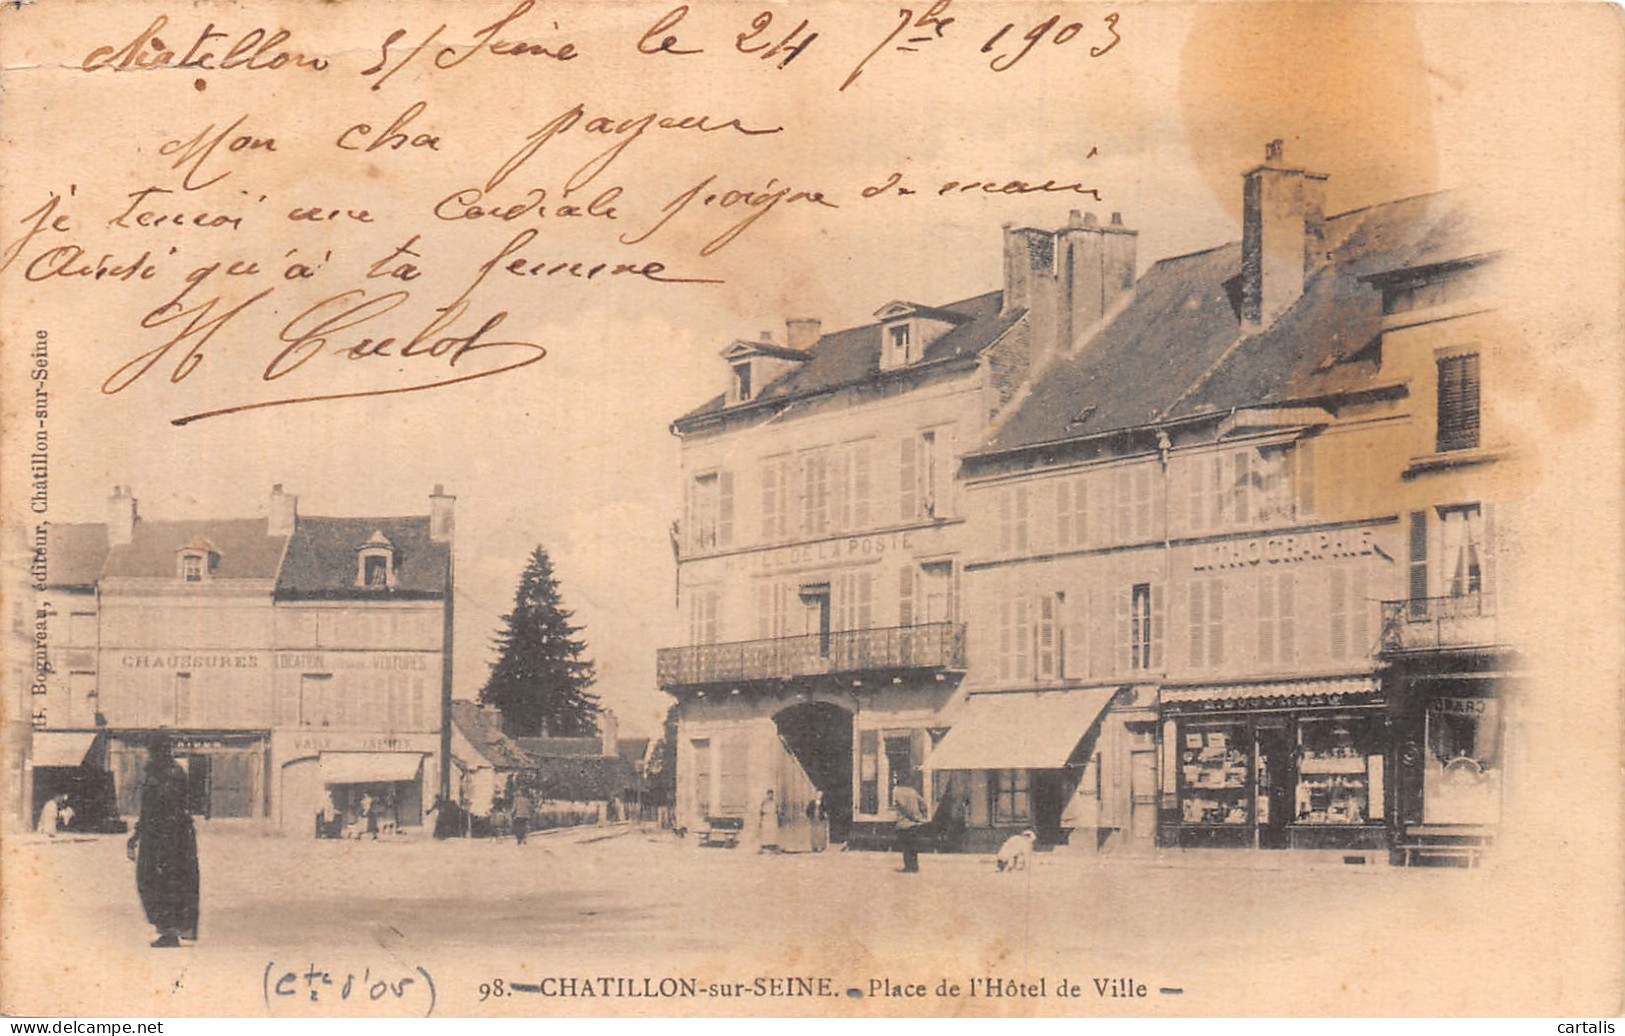 Chatillon s/ Seine le 24 7bre 1903
Mon cher payeur
je t'envoi une Cordiale poigne de main
Ainsi qu'à ta femme
H Culot
H. Bogureau, éditeur, Châtillon-sur-Seine
HOTEL DE LA POSTE
LITHOGRAPHIE
CHAUSSURES
LOCATION VOITURES
(Cte d'or)
98. — CHATILLON-sur-SEINE. — Place de l'Hôtel de Ville —
www.delcampe.net
cartalis